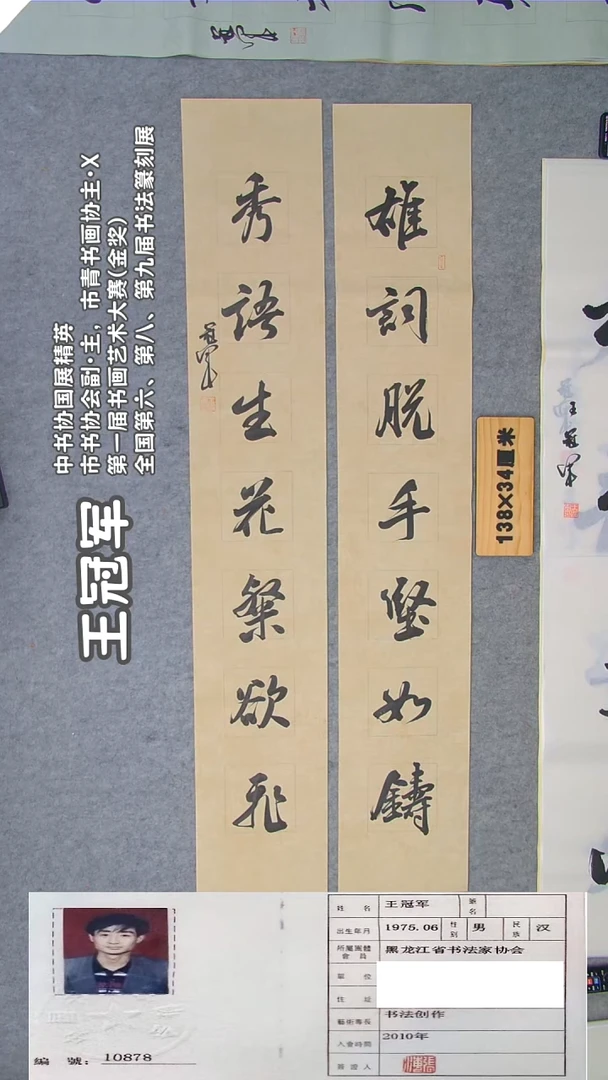 雄詞脱手堅如鑄
秀語生花粲欲飛
冠軍
138×34厘米
王冠軍
中书协国展精英
市书协会副·主，市青书画协主·X
第一届书画艺术大赛(金奖)
全国第六、第八、第九届书法篆刻展
王冠军
編 號：10878
姓 名 王冠军 筆名
出生年月 1975.06 性别 男 民族 汉
所屬團體會員 黑龙江省书法家协会
單 位
住 址
藝術專長 书法创作
入會時間 2010年
簽證人